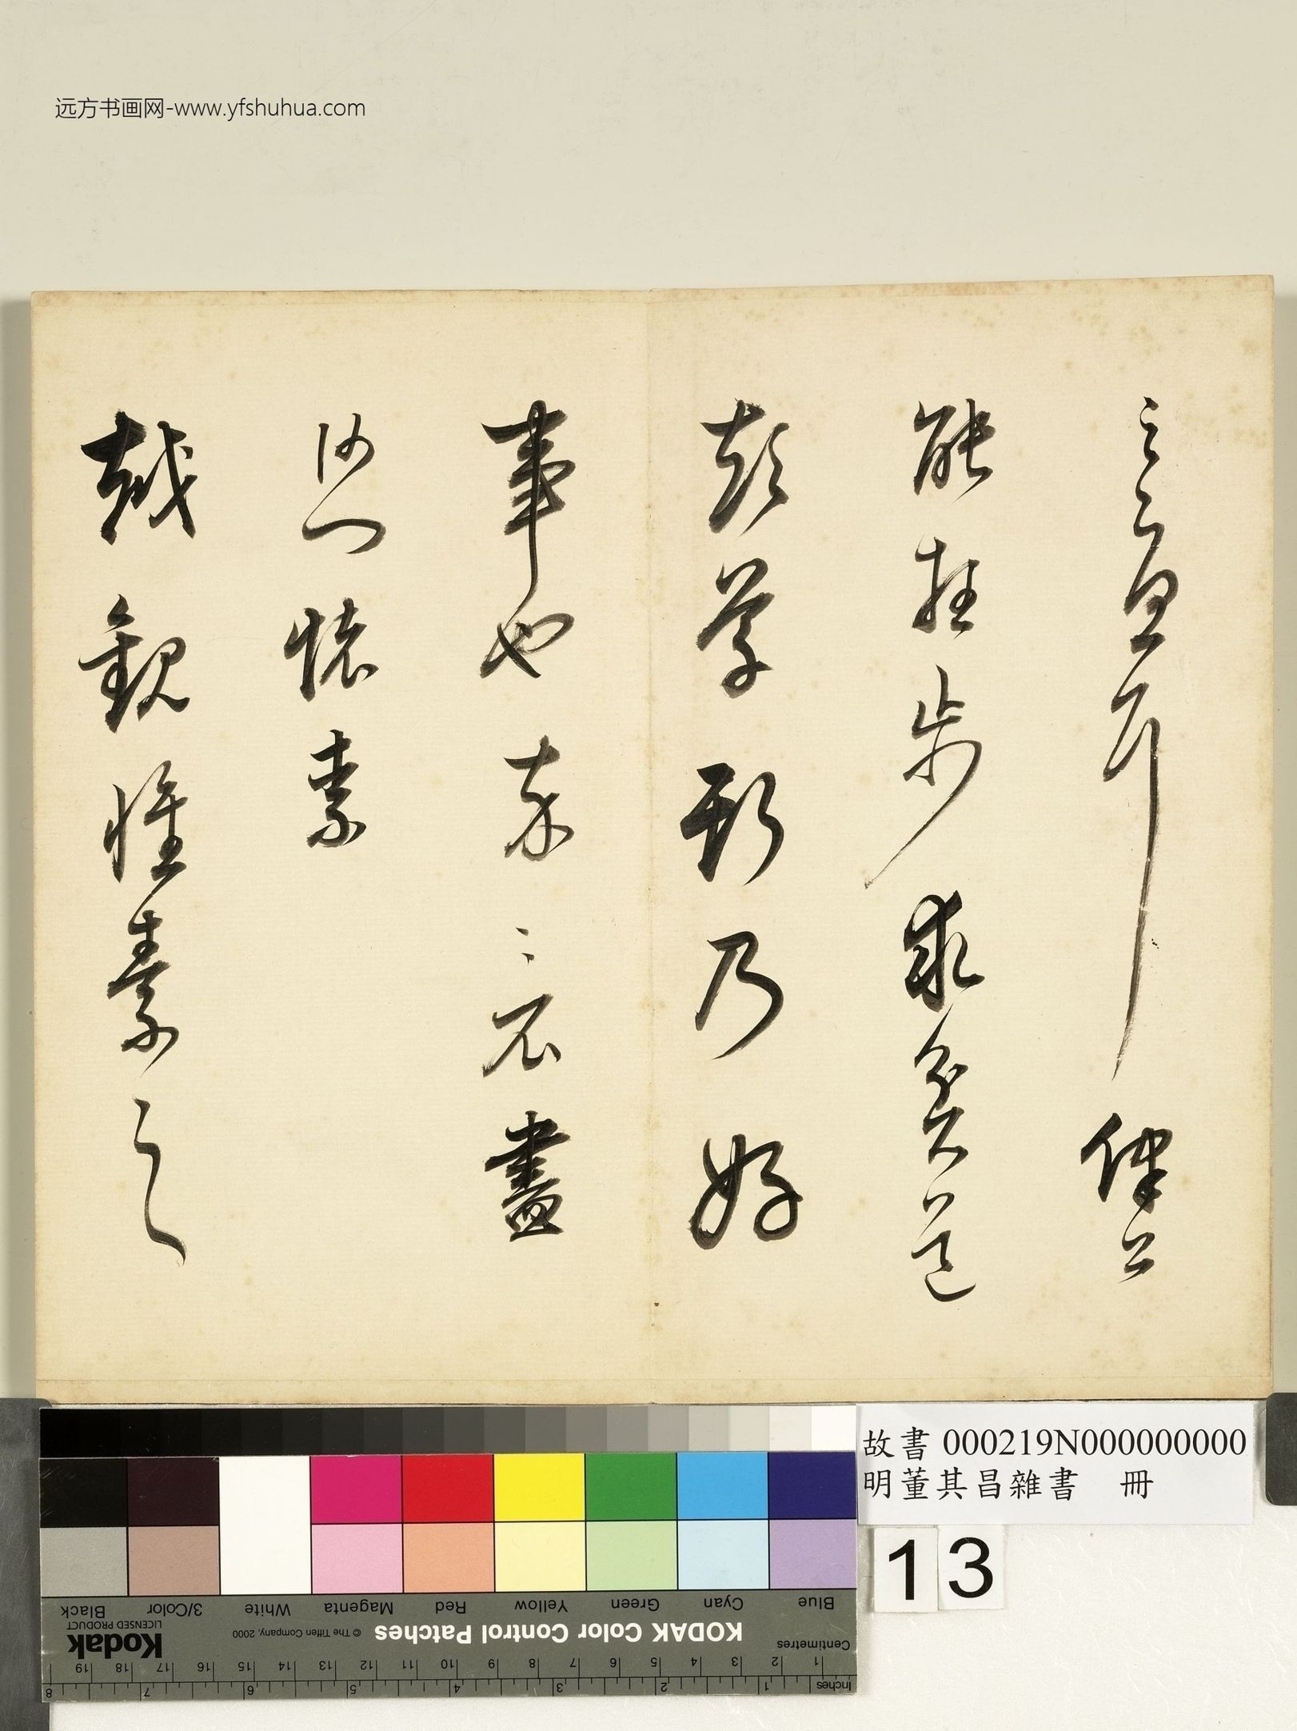 耳律公
能枉步求貧道
顛草斯乃好
事也卒〻不盡
沙門懷素
越觀惟素之
远方书画网-www.yfshuhua.com
故書 000219N000000000
明董其昌雜書 冊
13
Blue Cyan Green Yellow Red Magenta White 3/Color Black
KODAK Color Control Patches
© The Tiffen Company, 2000
Kodak
LICENSED PRODUCT
Centimetres
1 2 3 4 5 6 7 8 9 10 11 12 13 14 15 16 17 18 19
Inches
1 2 3 4 5 6 7 8